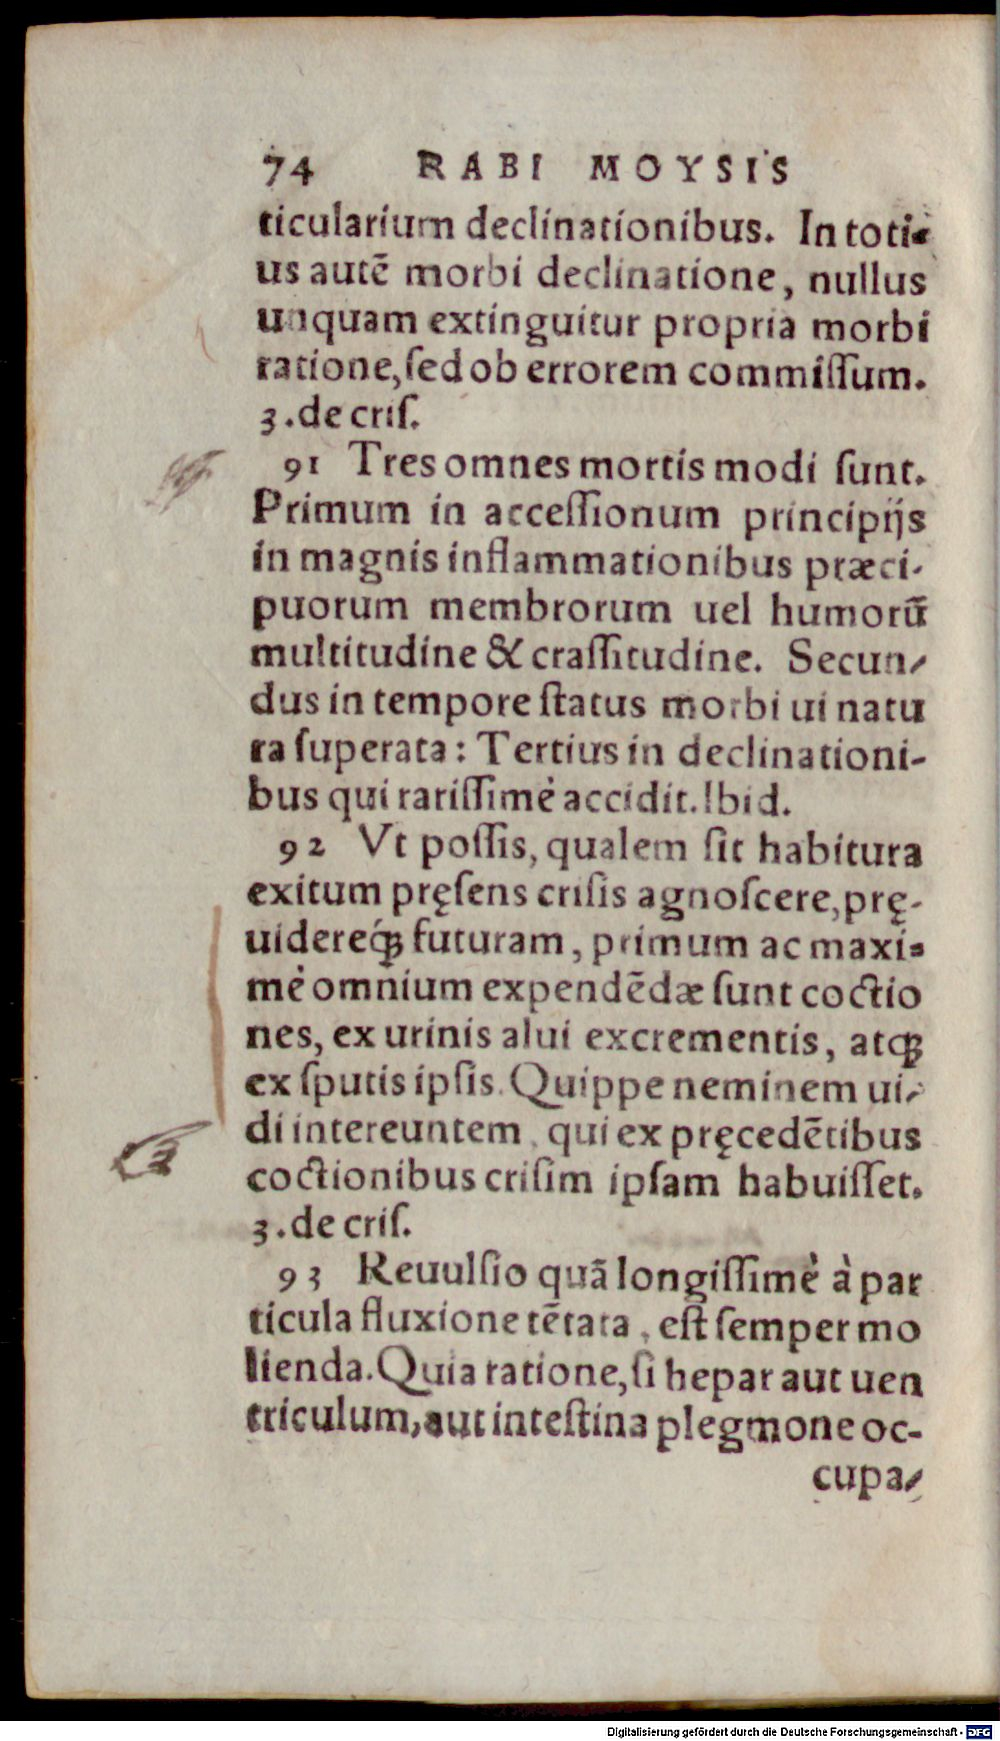 74 RABI MOYSIS
ticularium declinationibus. In toti-
us autē morbi declinatione, nullus
unquam extinguitur propria morbi
ratione, ſed ob errorem commiſſum.
3. de criſ.
91 Tres omnes mortis modi ſunt.
Primum in acceſſionum principijs
in magnis inflammationibus præci-
puorum membrorum uel humorū
multitudine & craſſitudine. Secun-
dus in tempore ſtatus morbi ui natu
ra ſuperata: Tertius in declinationi-
bus qui rariſſimè accidit. Ibid.
92 Vt poſſis, qualem ſit habitura
exitum pręſens criſis agnoſcere, prę-
uidereq́ꝫ futuram, primum ac maxi-
mè omnium expendēdæ ſunt coctio
nes, ex urinis alui excrementis, atqꝫ
ex ſputis ipſis. Quippe neminem ui-
di intereuntem, qui ex pręcedētibus
coctionibus criſim ipſam habuiſſet.
3. de criſ.
93 Reuulſio quā longiſſimè à par
ticula fluxione tētata, eſt ſemper mo
lienda. Quia ratione, ſi hepar aut uen
triculum, aut inteſtina plegmone oc-
cupa-
Digitalisierung gefördert durch die Deutsche Forschungsgemeinschaft - DFG